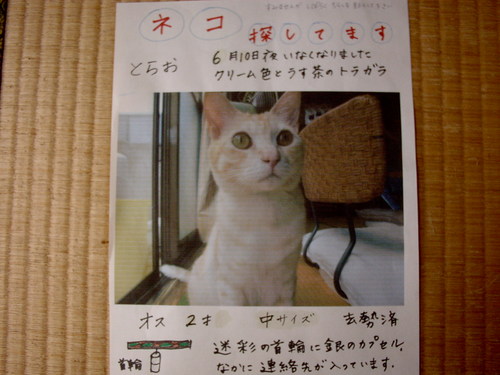 ネコ
探してます
とらお
6月10日夜いなくなりました
クリーム色とうす茶のトラガラ
オス 2才 中サイズ 去勢済
首輪
迷彩の首輪に銀のカプセル,
なかに連絡先が入っています.